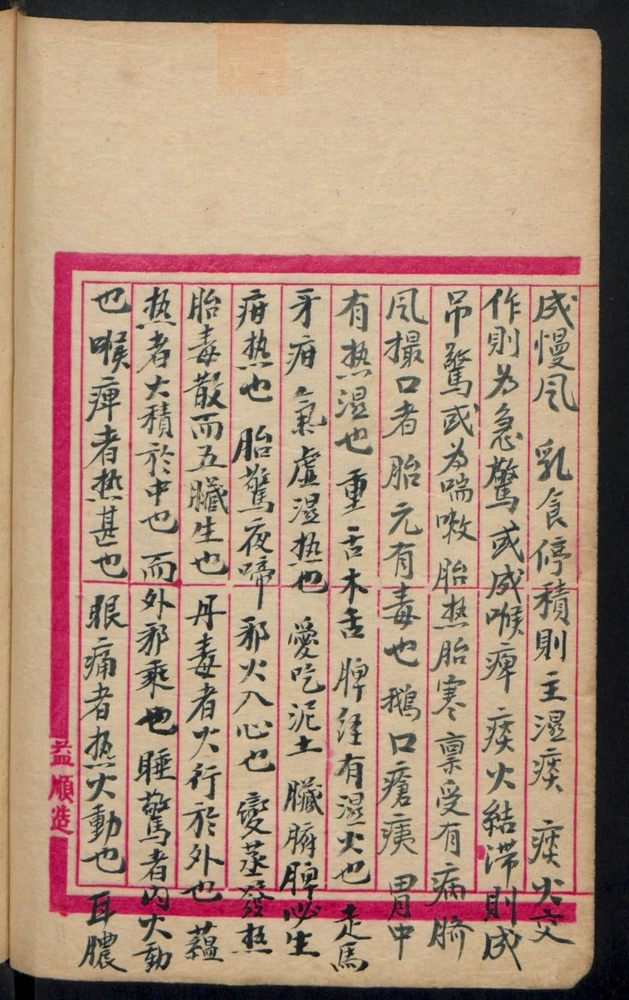 成慢风 乳食停積則主濕痰 痰火交
作則为急驚或成喉痺 痰火結滞則成
吊驚或为喘嗽 胎热胎寒禀受有病 臍
风撮口者胎元有毒也 鵝口瘡痍 胃中
有热湿也 重舌木舌 脾经有湿火也 走馬
牙疳 氣虚湿热也 愛吃泥土 臟腑脾必生
疳热也 胎驚夜啼 邪火入心也 變蒸發热
胎毒散而五臟生也 丹毒者火行於外也 蘊
热者火積於中也 而外邪乘也 睡驚者内火動
也 喉痺者热甚也 眼痛者热火動也 耳膿
益順造